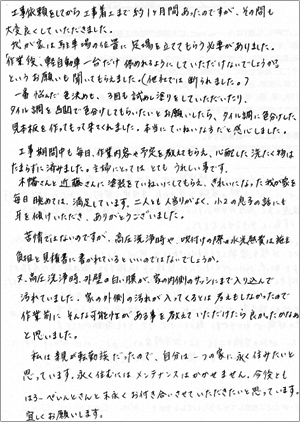 工事依頼をしてから工事着工まで約1ヶ月間あったのですが、その間も
大変良くしていただきました。
我が家は駐車場の位置に足場を立ててもらう必要がありました。
作業後、軽自動車一台だけ停めれるようにしていただけないでしょうか
というお願いも聞いてもらえました。(他社では断られました。)
一番悩んだ色決めも、3回も試し塗りをしていただいたり、
タイル調を色間で色分けしてもらいたいとお願いしたら、タイル調に色分けした
見本板を作ってもって来てくれました。本当にていねいな方だと感心しました。
工事期間中も毎日、作業内容や予定を教えてもらえ、心配した洗たく物は
たまらずに済みました。主婦にとっては とても うれしい事です。
木陽さんと近藤さんに塗装をていねいにしてもらえ、きれいになった我が家を
毎日眺めては、満足しています。二人とも人当りがよく、小2の息子の話にも
耳を傾けていただき、ありがとうございました。
苦情ではないのですが、高圧洗浄時や、吹付けの際の水光熱費は施主
負担と見積書に書かれているといいのではないでしょうか。
又、高圧洗浄時、外壁の白い膜が、家の内側のサッシにまで入り込んで
汚れていました。家の外側の汚れが入ってくるとは考えもしなかったので
作業前に そんな可能性が ある事を教えていただけたら良かったかなぁ
と思いました。
私は親が転勤族だったので、自分は一つの家に永く住みたいと
思っています。永く住むには メンテナンスはかかせません。今後とも
はろーぺいんとさんと末永くお付き合いさせていただきたいと思っています。
宜しくお願いします。